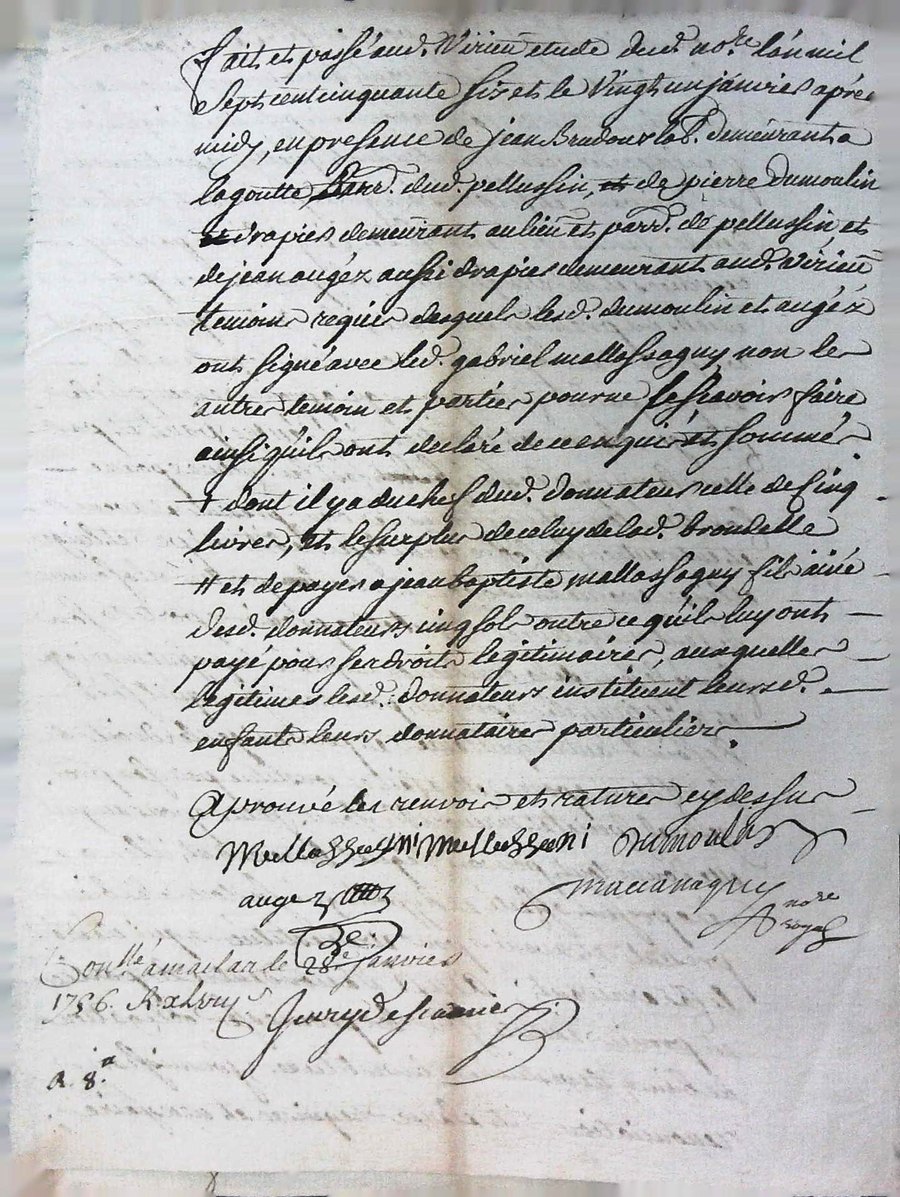 fait et passé aud. Virieu etude dud. no.re l'an mil
sept cent cinquante six et le vingt un janvier après
midy, en presence de jean Bradour lab. demeurant a
lagoutte parr. dud. pellussin, et de pierre dumoulin
drapier demeurant au lieu et parr. de pellussin et
de jean augéz aussi drapier demeurant aud. Virieu
temoins requis desquels lesd. dumoulin et augéz
ont signé avec led. gabriel mallassagny non les
autres temoin et parties pour ne sçavoir faire
ainsi qu'ils ont declaré de ce enquis et sommés
+ dont il y a du chef dud. donnateur celle de cinq
livres, et le surplus de celuy de lad. brondelle
# et de payer a jean baptiste mallassagny fils ainé
desd. donnateurs cinq sols outre ce qu'ils luy ont
payé pour ses droits legitimaires, auxquelles
legitimes lesd. donnateurs instituent leursd.
enfants leurs donnataires particuliers.
Aprouvé les renvois et ratures cy dessus
Mellassagni Mellesseni Dumoulin
augez
no.re
royal
Con.llé a maclas le 28e janvier
1756. R
R. 8.